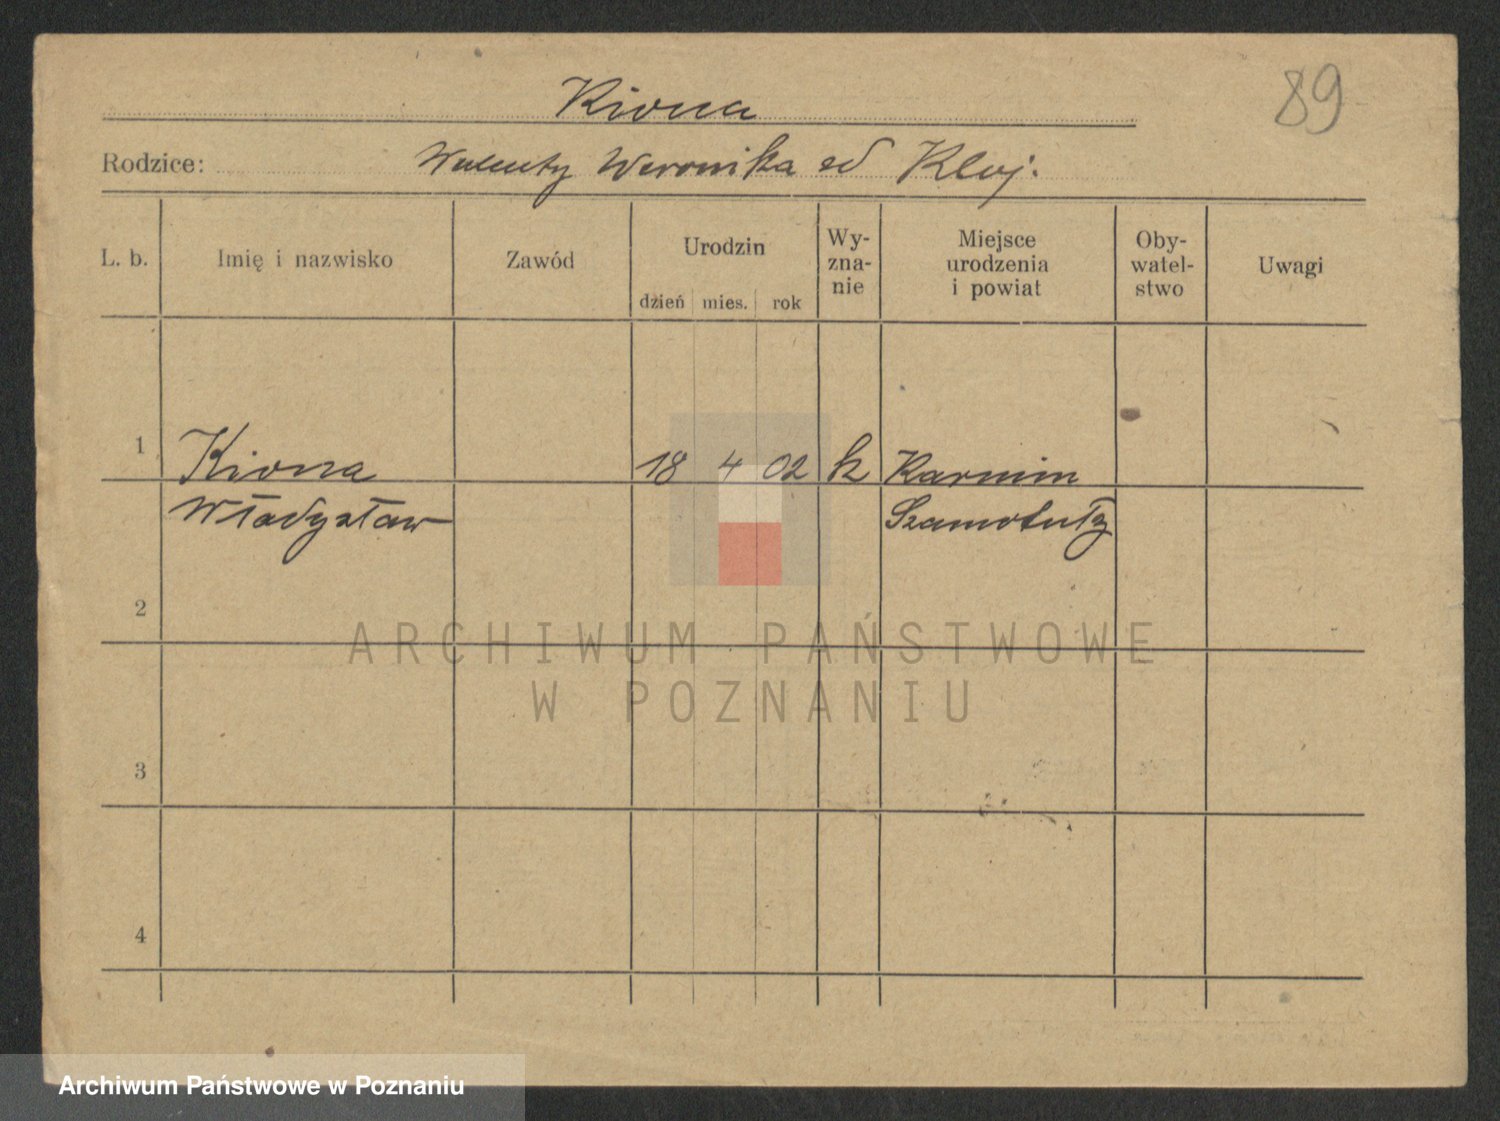 89
Kiona
Rodzice: Walenty Weronika zd Kluj.
L. b. Imię i nazwisko Zawód Urodzin dzień mies. rok Wy-zna-nie Miejsce urodzenia i powiat Oby-watel-stwo Uwagi
1 Kiona 18 4 02 k Karmin
Władysław Szamotuły
2
ARCHIWUM PAŃSTWOWE
W POZNANIU
3
4
Archiwum Państwowe w Poznaniu